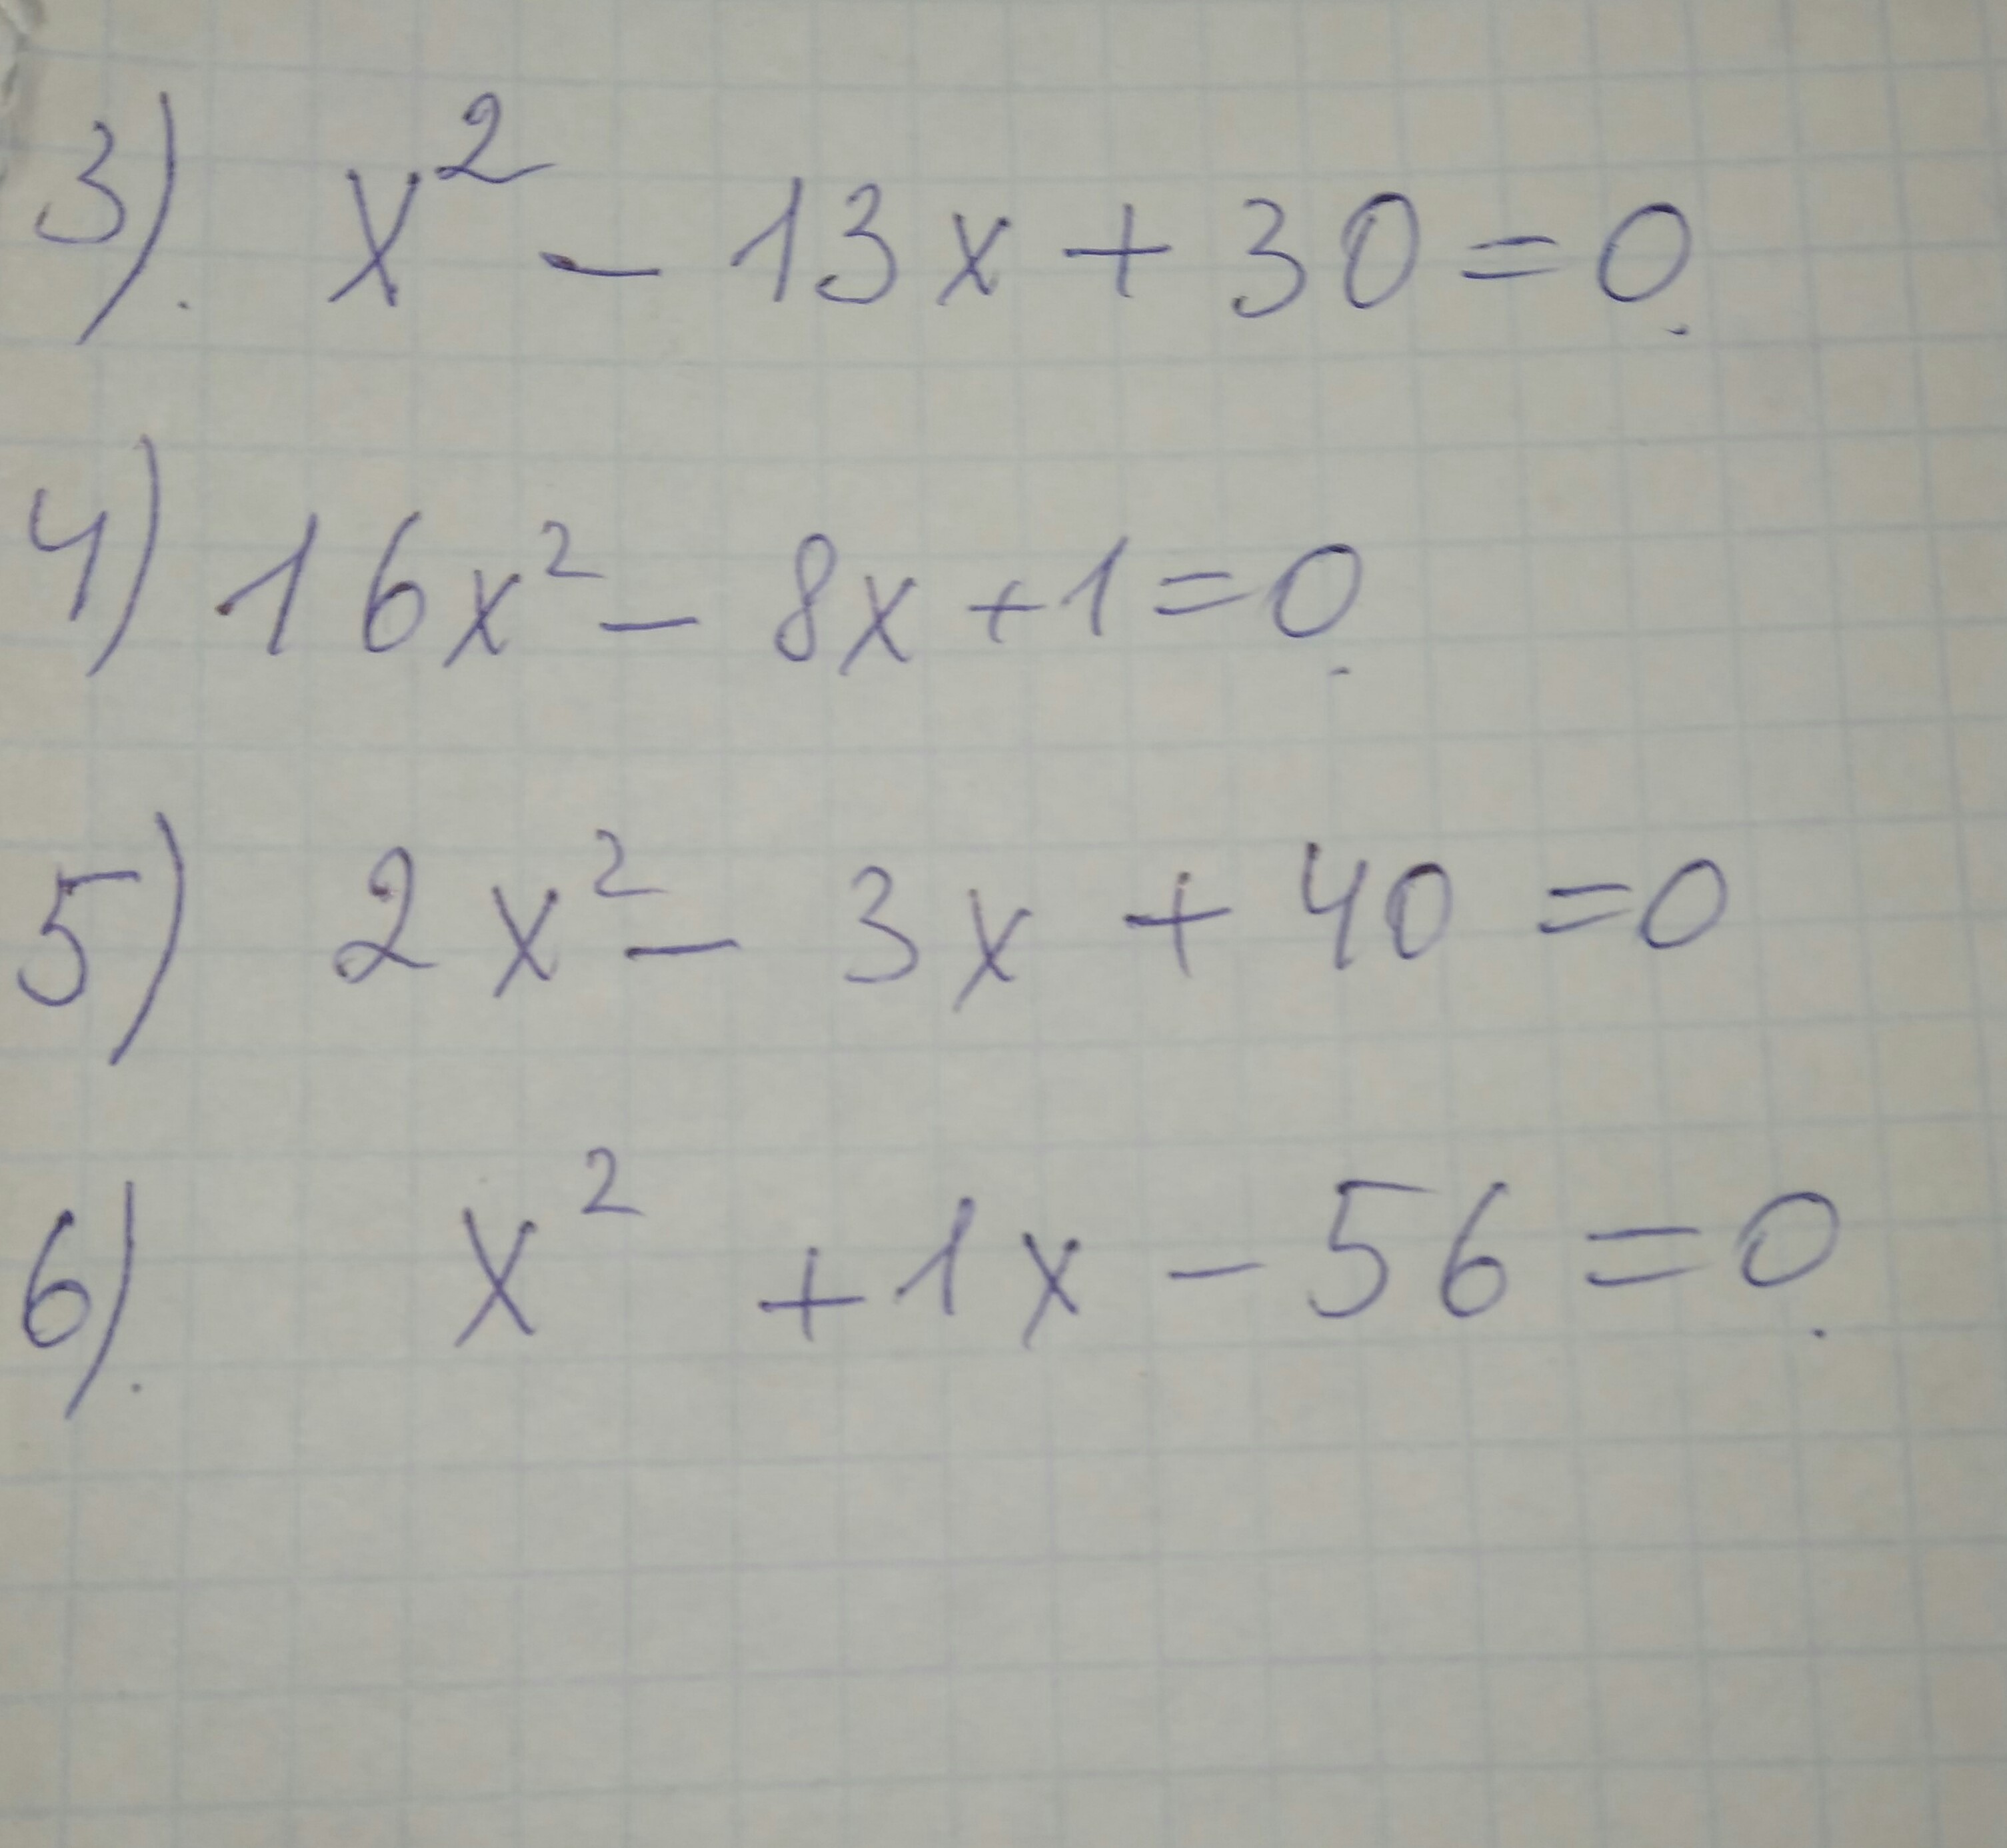 3). x² - 13x + 30 = 0.
4) 16x² - 8x + 1 = 0.
5) 2x² - 3x + 40 = 0
6). x² + 1x - 56 = 0.